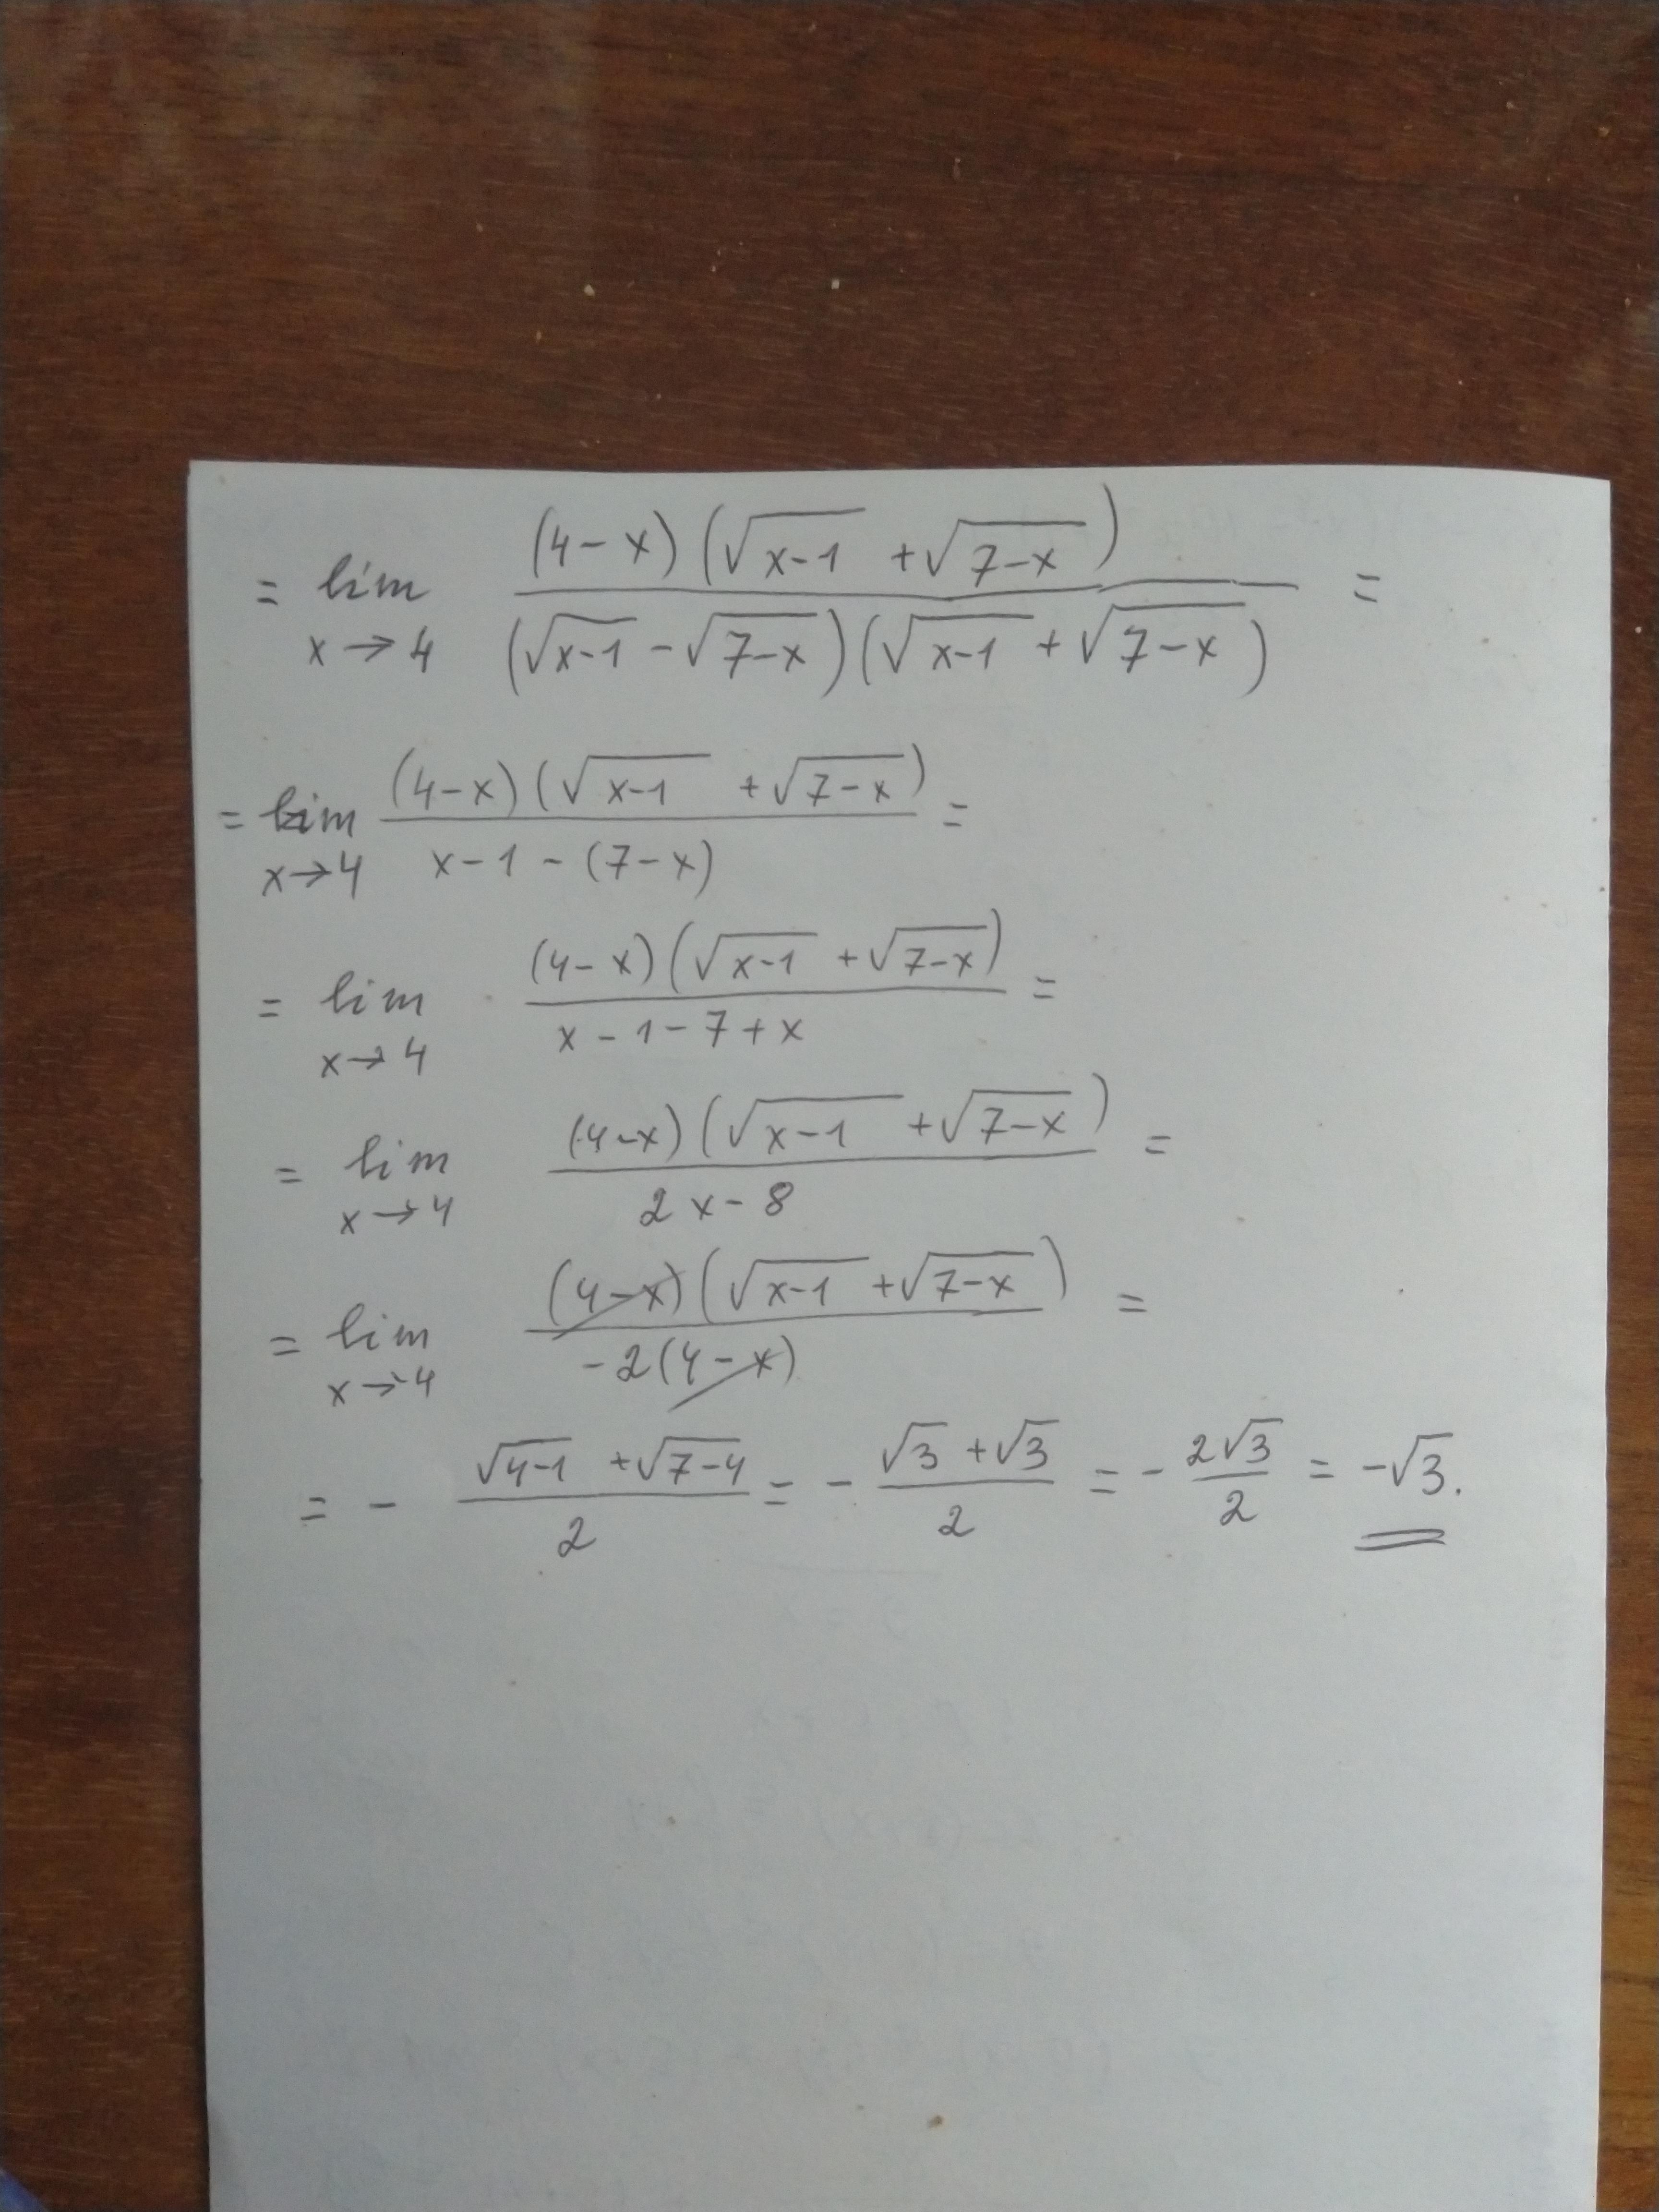 = lim x→4 (4-x)(√(x-1) + √(7-x)) / (√(x-1) - √(7-x))(√(x-1) + √(7-x)) =
= lim x→4 (4-x)(√(x-1) + √(7-x)) / x-1-(7-x) =
= lim x→4 (4-x)(√(x-1) + √(7-x)) / x-1-7+x =
= lim x→4 (4-x)(√(x-1) + √(7-x)) / 2x-8 =
= lim x→4 (4-x)(√(x-1) + √(7-x)) / -2(4-x) =
= - (√(4-1) + √(7-4)) / 2 = - (√3 + √3) / 2 = - 2√3 / 2 = -√3.